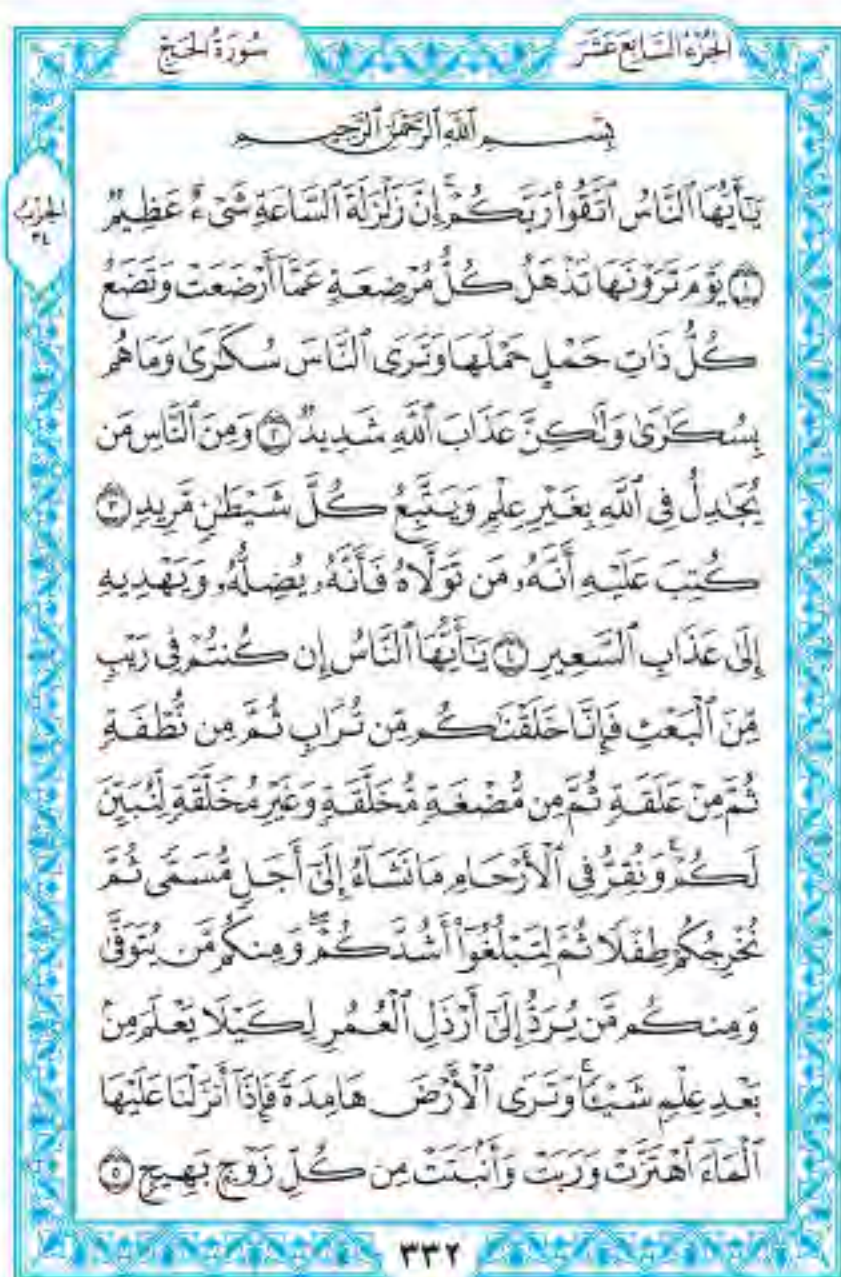 الجزء السابع عشر
سورة الحج
بِسْمِ ٱللَّهِ ٱلرَّحْمَٰنِ ٱلرَّحِيمِ
الحزب ٣٤
يَٰٓأَيُّهَا ٱلنَّاسُ ٱتَّقُوا۟ رَبَّكُمْ ۚ إِنَّ زَلْزَلَةَ ٱلسَّاعَةِ شَىْءٌ عَظِيمٌ
١ يَوْمَ تَرَوْنَهَا تَذْهَلُ كُلُّ مُرْضِعَةٍ عَمَّآ أَرْضَعَتْ وَتَضَعُ
كُلُّ ذَاتِ حَمْلٍ حَمْلَهَا وَتَرَى ٱلنَّاسَ سُكَٰرَىٰ وَمَا هُم
بِسُكَٰرَىٰ وَلَٰكِنَّ عَذَابَ ٱللَّهِ شَدِيدٌ ٢ وَمِنَ ٱلنَّاسِ مَن
يُجَٰدِلُ فِى ٱللَّهِ بِغَيْرِ عِلْمٍ وَيَتَّبِعُ كُلَّ شَيْطَٰنٍ مَّرِيدٍ ٣
كُتِبَ عَلَيْهِ أَنَّهُۥ مَن تَوَلَّاهُ فَأَنَّهُۥ يُضِلُّهُۥ وَيَهْدِيهِ
إِلَىٰ عَذَابِ ٱلسَّعِيرِ ٤ يَٰٓأَيُّهَا ٱلنَّاسُ إِن كُنتُمْ فِى رَيْبٍ
مِّنَ ٱلْبَعْثِ فَإِنَّا خَلَقْنَٰكُم مِّن تُرَابٍ ثُمَّ مِن نُّطْفَةٍ
ثُمَّ مِنْ عَلَقَةٍ ثُمَّ مِن مُّضْغَةٍ مُّخَلَّقَةٍ وَغَيْرِ مُخَلَّقَةٍ لِّنُبَيِّنَ
لَكُمْ ۚ وَنُقِرُّ فِى ٱلْأَرْحَامِ مَا نَشَآءُ إِلَىٰٓ أَجَلٍ مُّسَمًّى ثُمَّ
نُخْرِجُكُمْ طِفْلًا ثُمَّ لِتَبْلُغُوٓا۟ أَشُدَّكُمْ ۖ وَمِنكُم مَّن يُتَوَفَّىٰ
وَمِنكُم مَّن يُرَدُّ إِلَىٰٓ أَرْذَلِ ٱلْعُمُرِ لِكَيْلَا يَعْلَمَ مِنۢ
بَعْدِ عِلْمٍ شَيْـًٔا ۚ وَتَرَى ٱلْأَرْضَ هَامِدَةً فَإِذَآ أَنزَلْنَا عَلَيْهَا
ٱلْمَآءَ ٱهْتَزَّتْ وَرَبَتْ وَأَنۢبَتَتْ مِن كُلِّ زَوْجٍۭ بَهِيجٍ ٥
٣٣٢